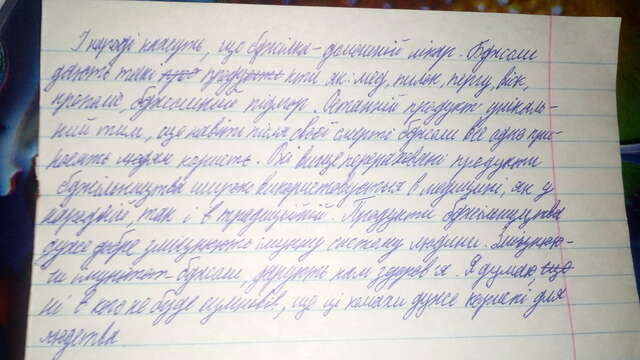 І народі кажуть, що бджілка - домашній лікар. Бджоли
дають такі продукти як: мед, пилок, пергу, віск,
прополіс, бджолиний підмор. Останній продукт унікаль-
ний тим, що навіть після своєї смерті бджоли все одно при-
носять людям користь. Всі вище перераховані продукти
бджільництва широко використовуються в медицині, як у
народній, так і в традиційній. Продукти бджільництва
дуже добре зміцнюють імунну систему людини. Зміцнюю-
чи імунітет бджоли, дарують нам здоров'я. Я думаю що
ні в кого не буде сумнівів, що ці комахи дуже корисні для
людства.